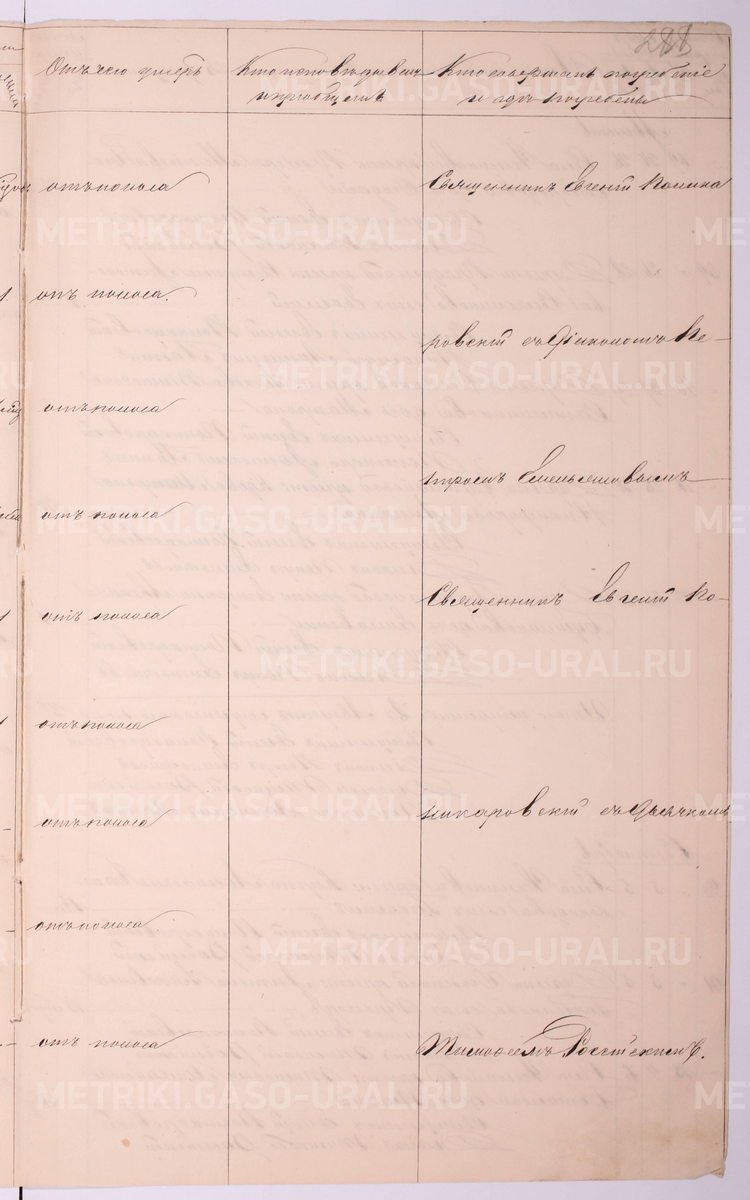 288
Отъ чего умеръ
Кто исповѣдывалъ
и пріобщалъ
Кто совершалъ погребеніе
и гдѣ погребены
отъ поноса
Священникъ Евгеній Комина
отъ поноса.
ровскій съ Діакономъ Пе-
отъ поноса
тромъ Емельяновымъ
отъ поноса
Священникъ Евгеній Ко-
отъ поноса
отъ поноса
отъ поноса
минаровскій съ Дьячкомъ
отъ поноса
отъ поноса
METRIKI.GASO-URAL.RU